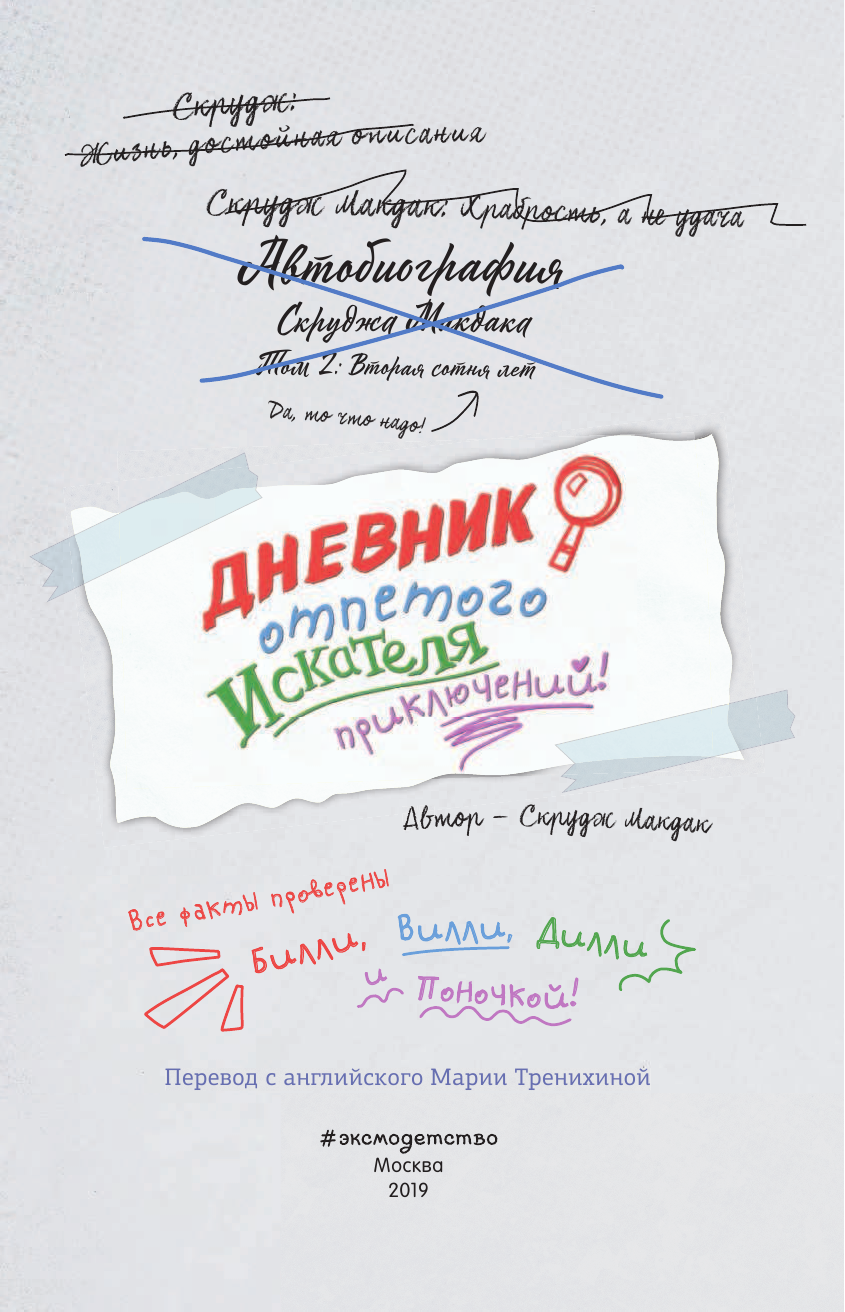 Скрудж:
Жизнь, достойная описания
Скрудж Макдак: Храбрость, а не удача
Автобиография
Скруджа Макдака
Том 2: Вторая сотня лет
Да, то что надо!
ДНЕВНИК
отпетого
Искателя
приключений!
Автор – Скрудж Макдак
Все факты проверены
Билли, Вилли, Дилли
и Поночкой!
Перевод с английского Марии Тренихиной
#эксмодетство
Москва
2019